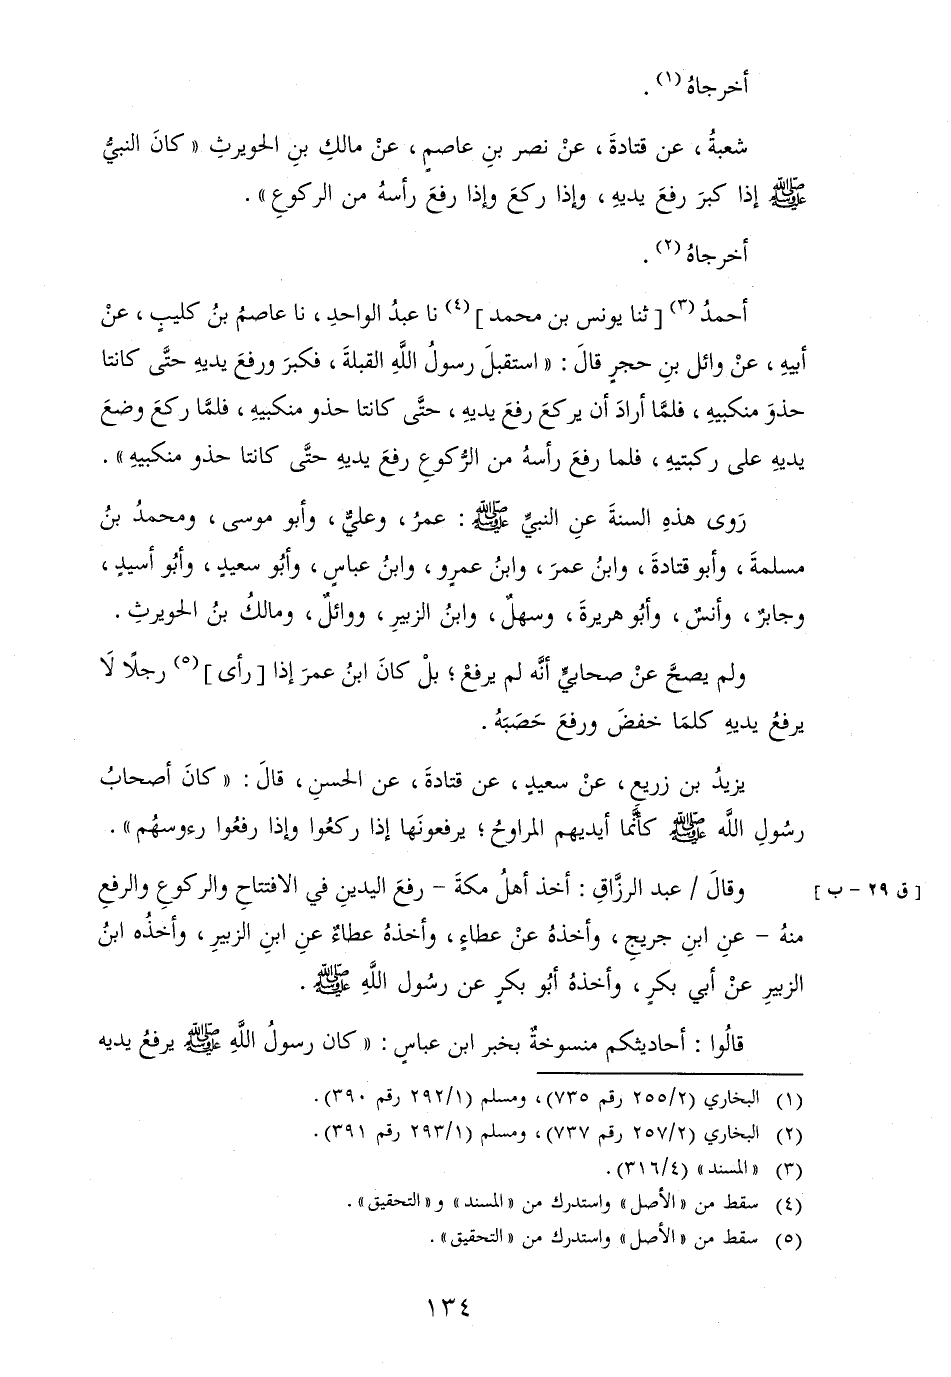 أخرجاهُ (١) .
شعبةُ ، عن قتادةَ ، عنْ نصر بنِ عاصمٍ ، عنْ مالكِ بنِ الحويرثِ « كانَ النبيُّ
ﷺ إذا كبرَ رفعَ يديهِ ، وإذا ركعَ وإذا رفعَ رأسهُ من الركوعِ » .
أخرجاهُ (٢) .
أحمدُ (٣) [ ثنا يونس بن محمد ] (٤) نا عبدُ الواحدِ ، نا عاصمُ بنُ كليبٍ ، عنْ
أبيهِ ، عنْ وائل بنِ حجرٍ قالَ : « استقبلَ رسولُ اللَّهِ القبلةَ ، فكبرَ ورفعَ يديهِ حتَّى كانتا
حذوَ منكبيهِ ، فلمَّا أرادَ أن يركعَ رفعَ يديهِ ، حتَّى كانتا حذو منكبيهِ ، فلمَّا ركعَ وضعَ
يديهِ على ركبتيهِ ، فلما رفعَ رأسهُ من الرُّكوعِ رفعَ يديهِ حتَّى كانتا حذو منكبيهِ » .
رَوى هذهِ السنةَ عنِ النبيِّ ﷺ : عمرُ ، وعليٌّ ، وأبو موسى ، ومحمدُ بنُ
مسلمةَ ، وأبو قتادةَ ، وابنُ عمرَ ، وابنُ عمرٍو ، وابنُ عباسٍ ، وأبُو سعيدٍ ، وأبُو أسيدٍ ،
وجابرٌ ، وأنسٌ ، وأبُو هريرةَ ، وسهلٌ ، وابنُ الزبيرِ ، ووائلٌ ، ومالكُ بنُ الحويرثِ .
ولم يصحَّ عنْ صحابيٍّ أنَّه لم يرفعْ ؛ بلْ كانَ ابنُ عمرَ إذا [ رأى ] (٥) رجلًا لَا
يرفعُ يديهِ كلمَا خفضَ ورفعَ حَصَبَهُ .
يزيدُ بن زريعٍ ، عنْ سعيدٍ ، عن قتادةَ ، عن الحسنِ ، قالَ : « كانَ أصحابُ
رسُولِ اللَّه ﷺ كأنَّما أيديهم المراوحُ ؛ يرفعونَها إذا ركعُوا وإذا رفعُوا رءوسهُم » .
وقالَ / عبد الرزَّاقِ : أخذ أهلُ مكةَ – رفعَ اليدينِ في الافتتاحِ والركوعِ والرفعِ [ ق ٢٩ – ب ]
منهُ – عنِ ابنِ جريجٍ ، وأخذهُ عنْ عطاءٍ ، وأخذهُ عطاءٌ عنِ ابنِ الزبيرِ ، وأخذُه ابنُ
الزبيرِ عنْ أبي بكرٍ ، وأخذهُ أبُو بكرٍ عن رسُول اللَّهِ ﷺ .
قالُوا : أحاديثكم منسوخةٌ بخبر ابن عباسٍ : « كان رسولُ اللَّهِ ﷺ يرفعُ يديه
(١) البخاري (٢/٢٥٥ رقم ٧٣٥)، ومسلم (١/٢٩٢ رقم ٣٩٠).
(٢) البخاري (٢/٢٥٧ رقم ٧٣٧)، ومسلم (١/٢٩٣ رقم ٣٩١).
(٣) « المسند » (٤/٣١٦).
(٤) سقط من « الأصل » واستدرك من « المسند » و« التحقيق » .
(٥) سقط من « الأصل » واستدرك من « التحقيق » .
١٣٤